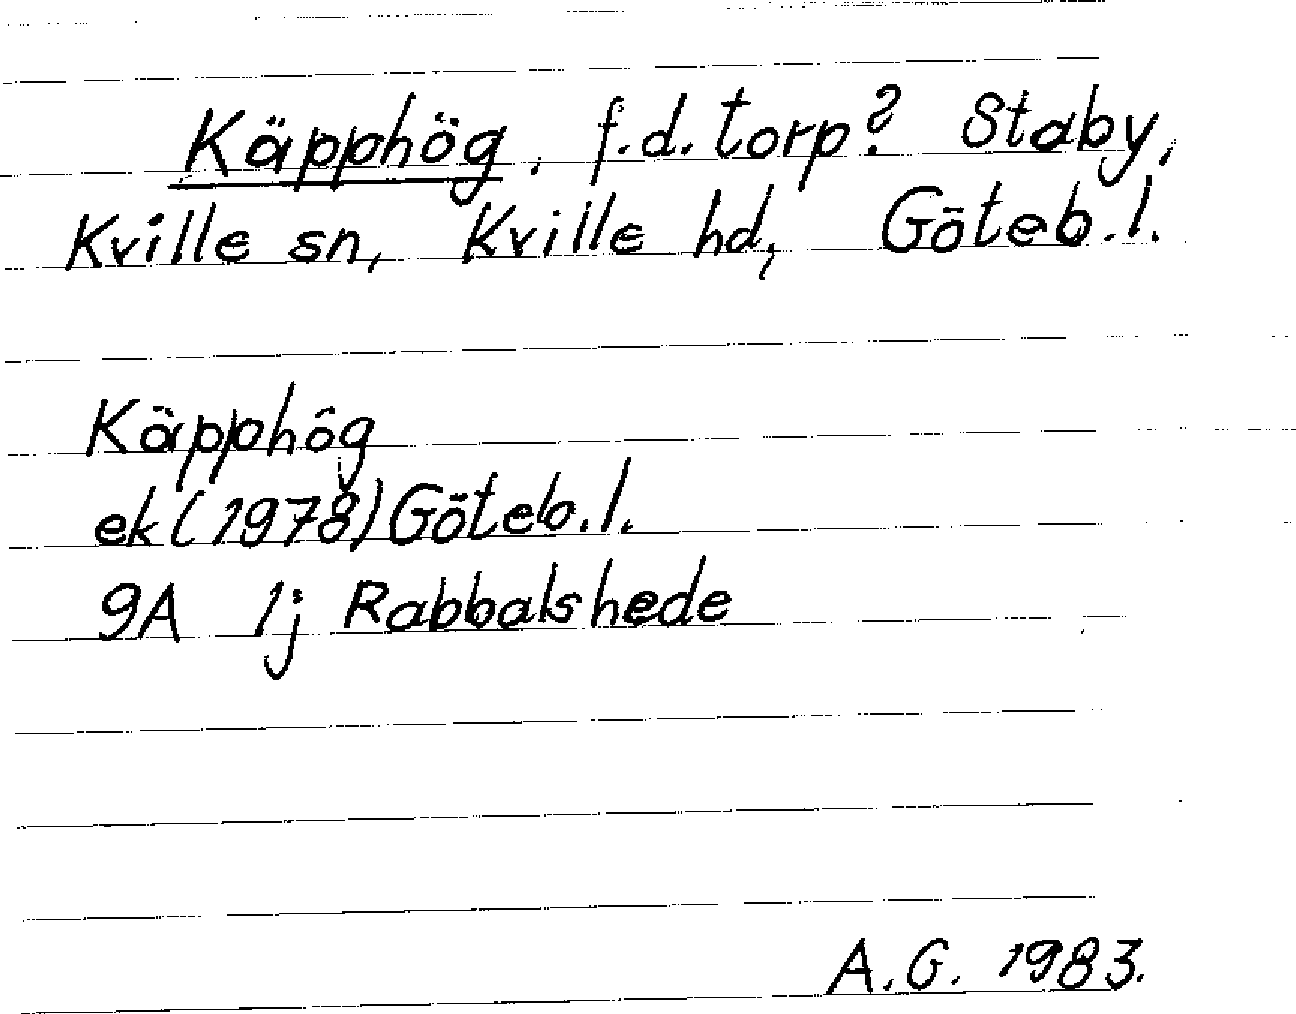 Käpphög, f.d. torp? Staby,
Kville sn, Kville hd, Göteb.l.
Käpphög
ek (1978) Göteb.l.
9A 1j Rabbalshede
A.G. 1983.